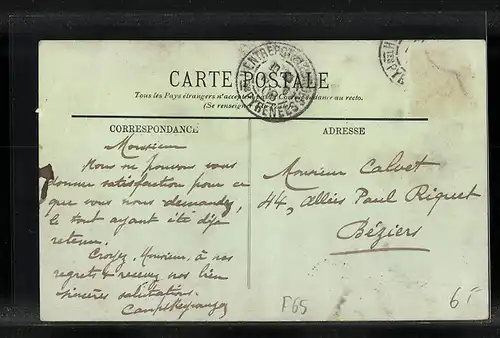 CARTE POSTALE
Tous les Pays étrangers n'acceptent pas la Correspondance au recto.
(Se renseigner
CORRESPONDANCE
Monsieur
Nous ne pouvons vous
donner satisfaction pour ce
que vous nous demandez,
le tout ayant été déjà
retenu.
Croyez, Monsieur, à nos
regrets & recevez nos bien
sincères salutations.
ADRESSE
Monsieur Calvet
44, allées Paul Riquet
Béziers
ENTREPOT
F65
6F